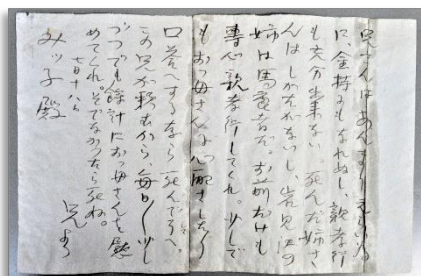 兄さんはあんまりえらい
に金持にもなれぬし、親孝行
も充分出来ない。死んだ姉さ
んはしかたがないし、岩見沢の
姉は馬鹿者だ。お前だけも
専心親孝行してくれ。少しで
もおっ母さんに心配さしたり
口答へするなら死んでまへ。
この兄が頼むから、毎日〱少し
づつでも余計におっ母さんを慰
めてくれ。そでなかったら死ね。
七月十八日
兄より
みツ子殿